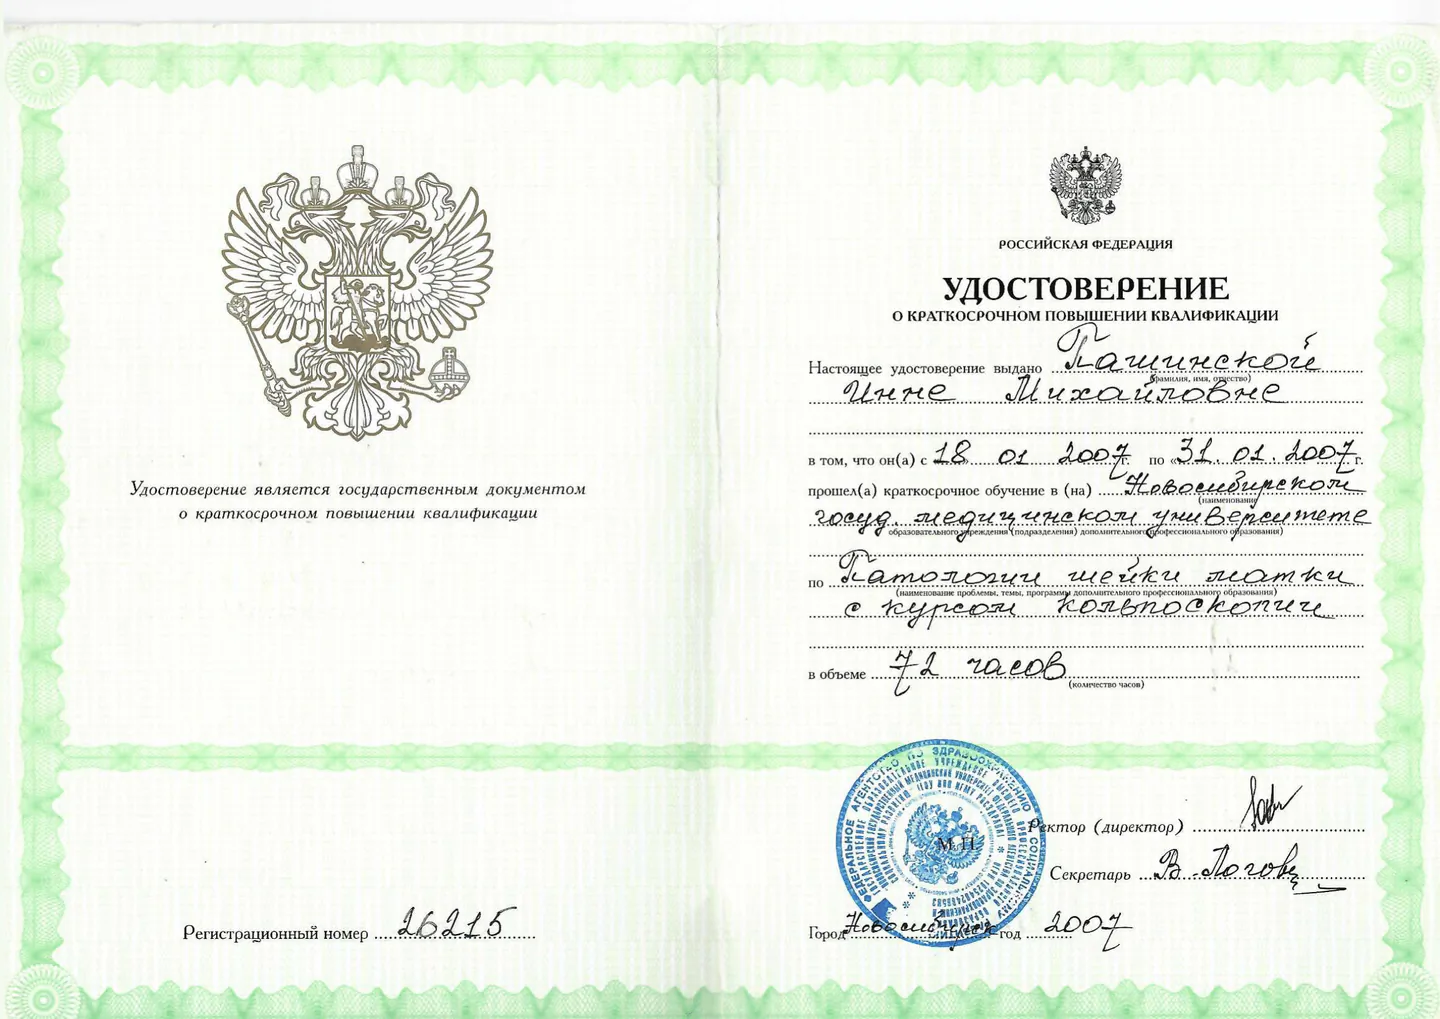 Удостоверение является государственным документом
о краткосрочном повышении квалификации
Регистрационный номер 26215
РОССИЙСКАЯ ФЕДЕРАЦИЯ
УДОСТОВЕРЕНИЕ
О КРАТКОСРОЧНОМ ПОВЫШЕНИИ КВАЛИФИКАЦИИ
Настоящее удостоверение выдано Пашинской
(фамилия, имя, отчество)
Инне Михайловне
в том, что он(а) с 18 01 2007г. по «31. 01. 2007 г.
прошел(а) краткосрочное обучение в (на) Новосибирском
(наименование
госуд. медицинском университете
образовательного учреждения (подразделения) дополнительного профессионального образования)
по Патологии шейки матки
(наименование проблемы, темы, программы дополнительного профессионального образования)
с курсом кольпоскопии
в объеме 72 часов
(количество часов)
ФЕДЕРАЛЬНОЕ АГЕНТСТВО ПО ЗДРАВООХРАНЕНИЮ И СОЦИАЛЬНОМУ
М.П.
Ректор (директор)
Секретарь В.
Город Новосибирск год 2007